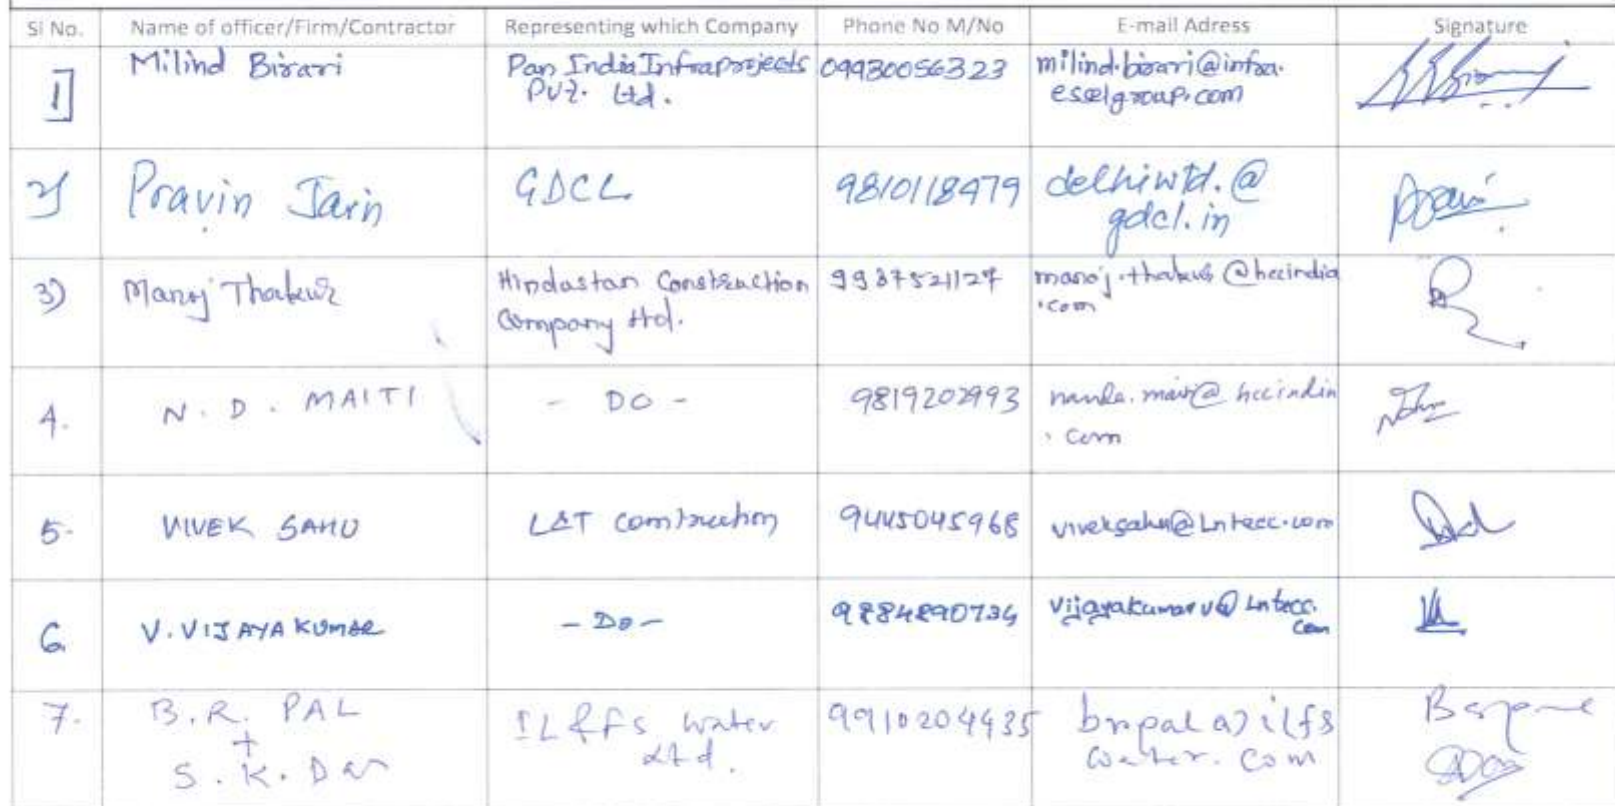 Sl No. Name of officer/Firm/Contractor Representing which Company Phone No M/No E-mail Adress Signature
1] Milind Birari Pan India Infraprojects 09930056323 milind.birari@infra.
Pvt. Ltd. esselgroup.com
2) Pravin Jain GDCL 9810118479 delhiwtd.@
gdcl.in
3) Manoj Thakur Hindustan Construction 9937521127 manoj.thakur@hccindia
Company Ltd. .com
4. N. D. MAITI - DO - 9819202993 hccindia
. com
5. VIVEK SAHU L&T construction 9445045968 viveksahu@Lntecc.com
6. V. VIJAYA KUMAR - Do - 9884890734 vijayakumarv@Lntecc.
com
7. B.R. PAL IL&FS water 9910204435 brpal a) ilfs
+ Ltd. water.com
S.K. Das